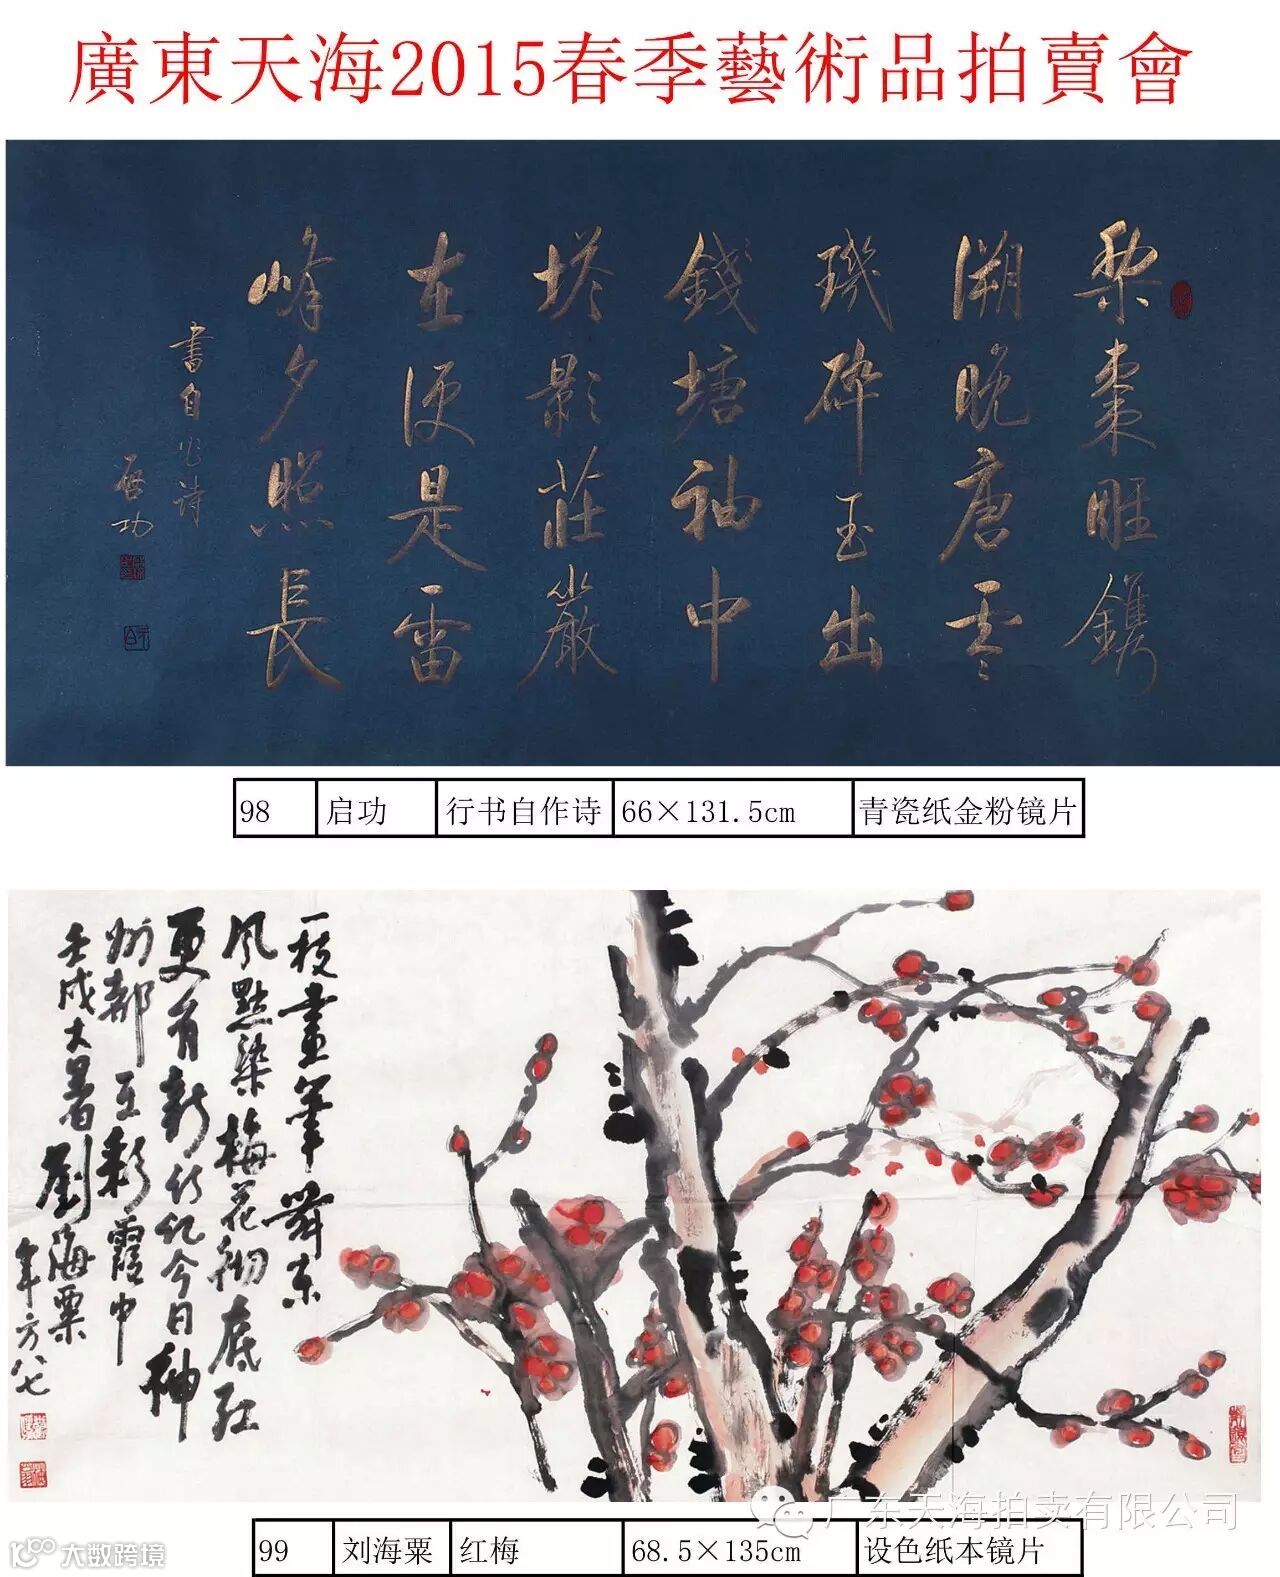 廣東天海2015春季藝術品拍賣會
棃棗雕鐫
溯晚唐零
璣碎玉出
錢塘袖中
塔影莊嚴
在便是雷
峰夕照長
書自作詩
启功
98 启功 行书自作诗 66×131.5cm 青瓷纸金粉镜片
一枝畫筆舞东
風點染梅花彻底红
更有新詩紀今日神
州都在彩霞中
壬戌大暑劉海粟
年方八七
广东天海拍卖有限公司
99 刘海粟 红梅 68.5×135cm 设色纸本镜片
大数跨境